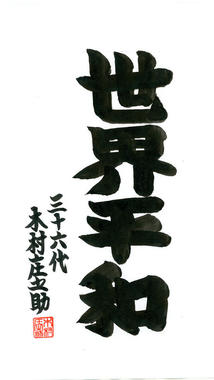 世界平和
三十六代
木村庄之助